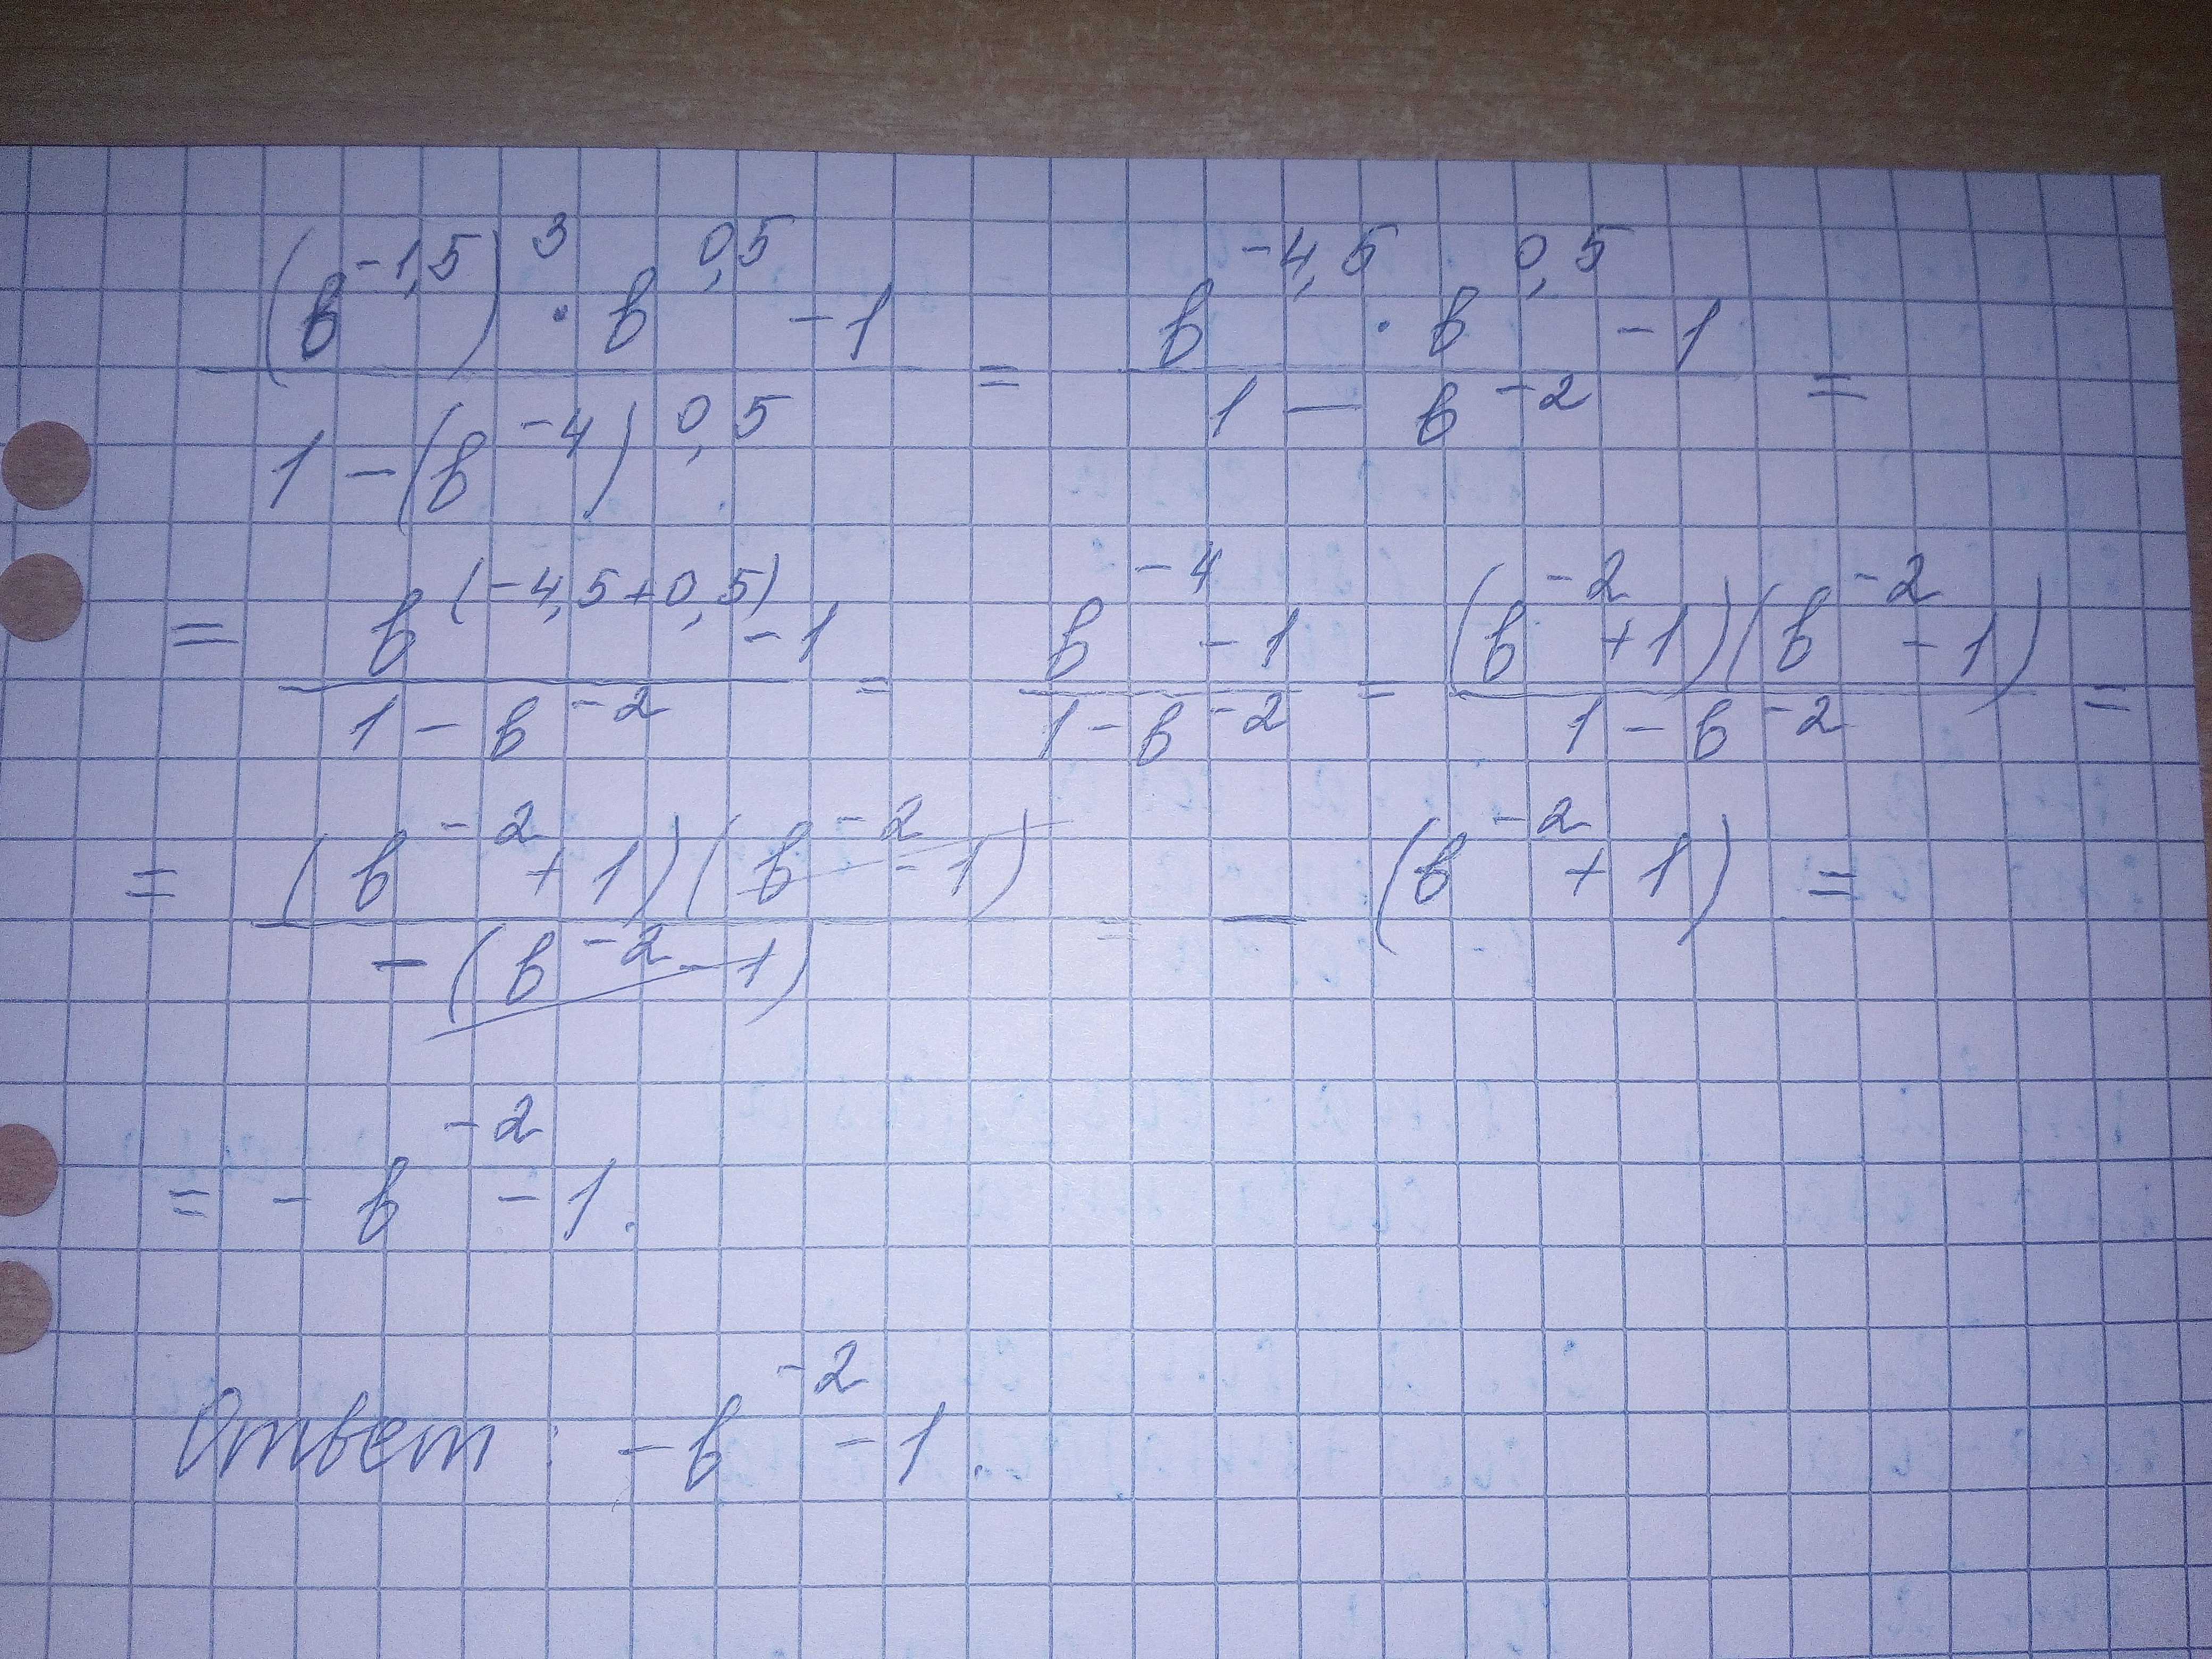 ((в^-1,5)^3 · в^0,5 - 1) / (1 - (в^-4)^0,5) = (в^-4,5 · в^0,5 - 1) / (1 - в^-2) =
= (в^(-4,5+0,5) - 1) / (1 - в^-2) = (в^-4 - 1) / (1 - в^-2) = ((в^-2 + 1)(в^-2 - 1)) / (1 - в^-2) =
= ((в^-2 + 1)(в^-2 - 1)) / (-(в^-2 - 1)) = - (в^-2 + 1) =
= - в^-2 - 1.
Ответ: -в^-2 - 1.